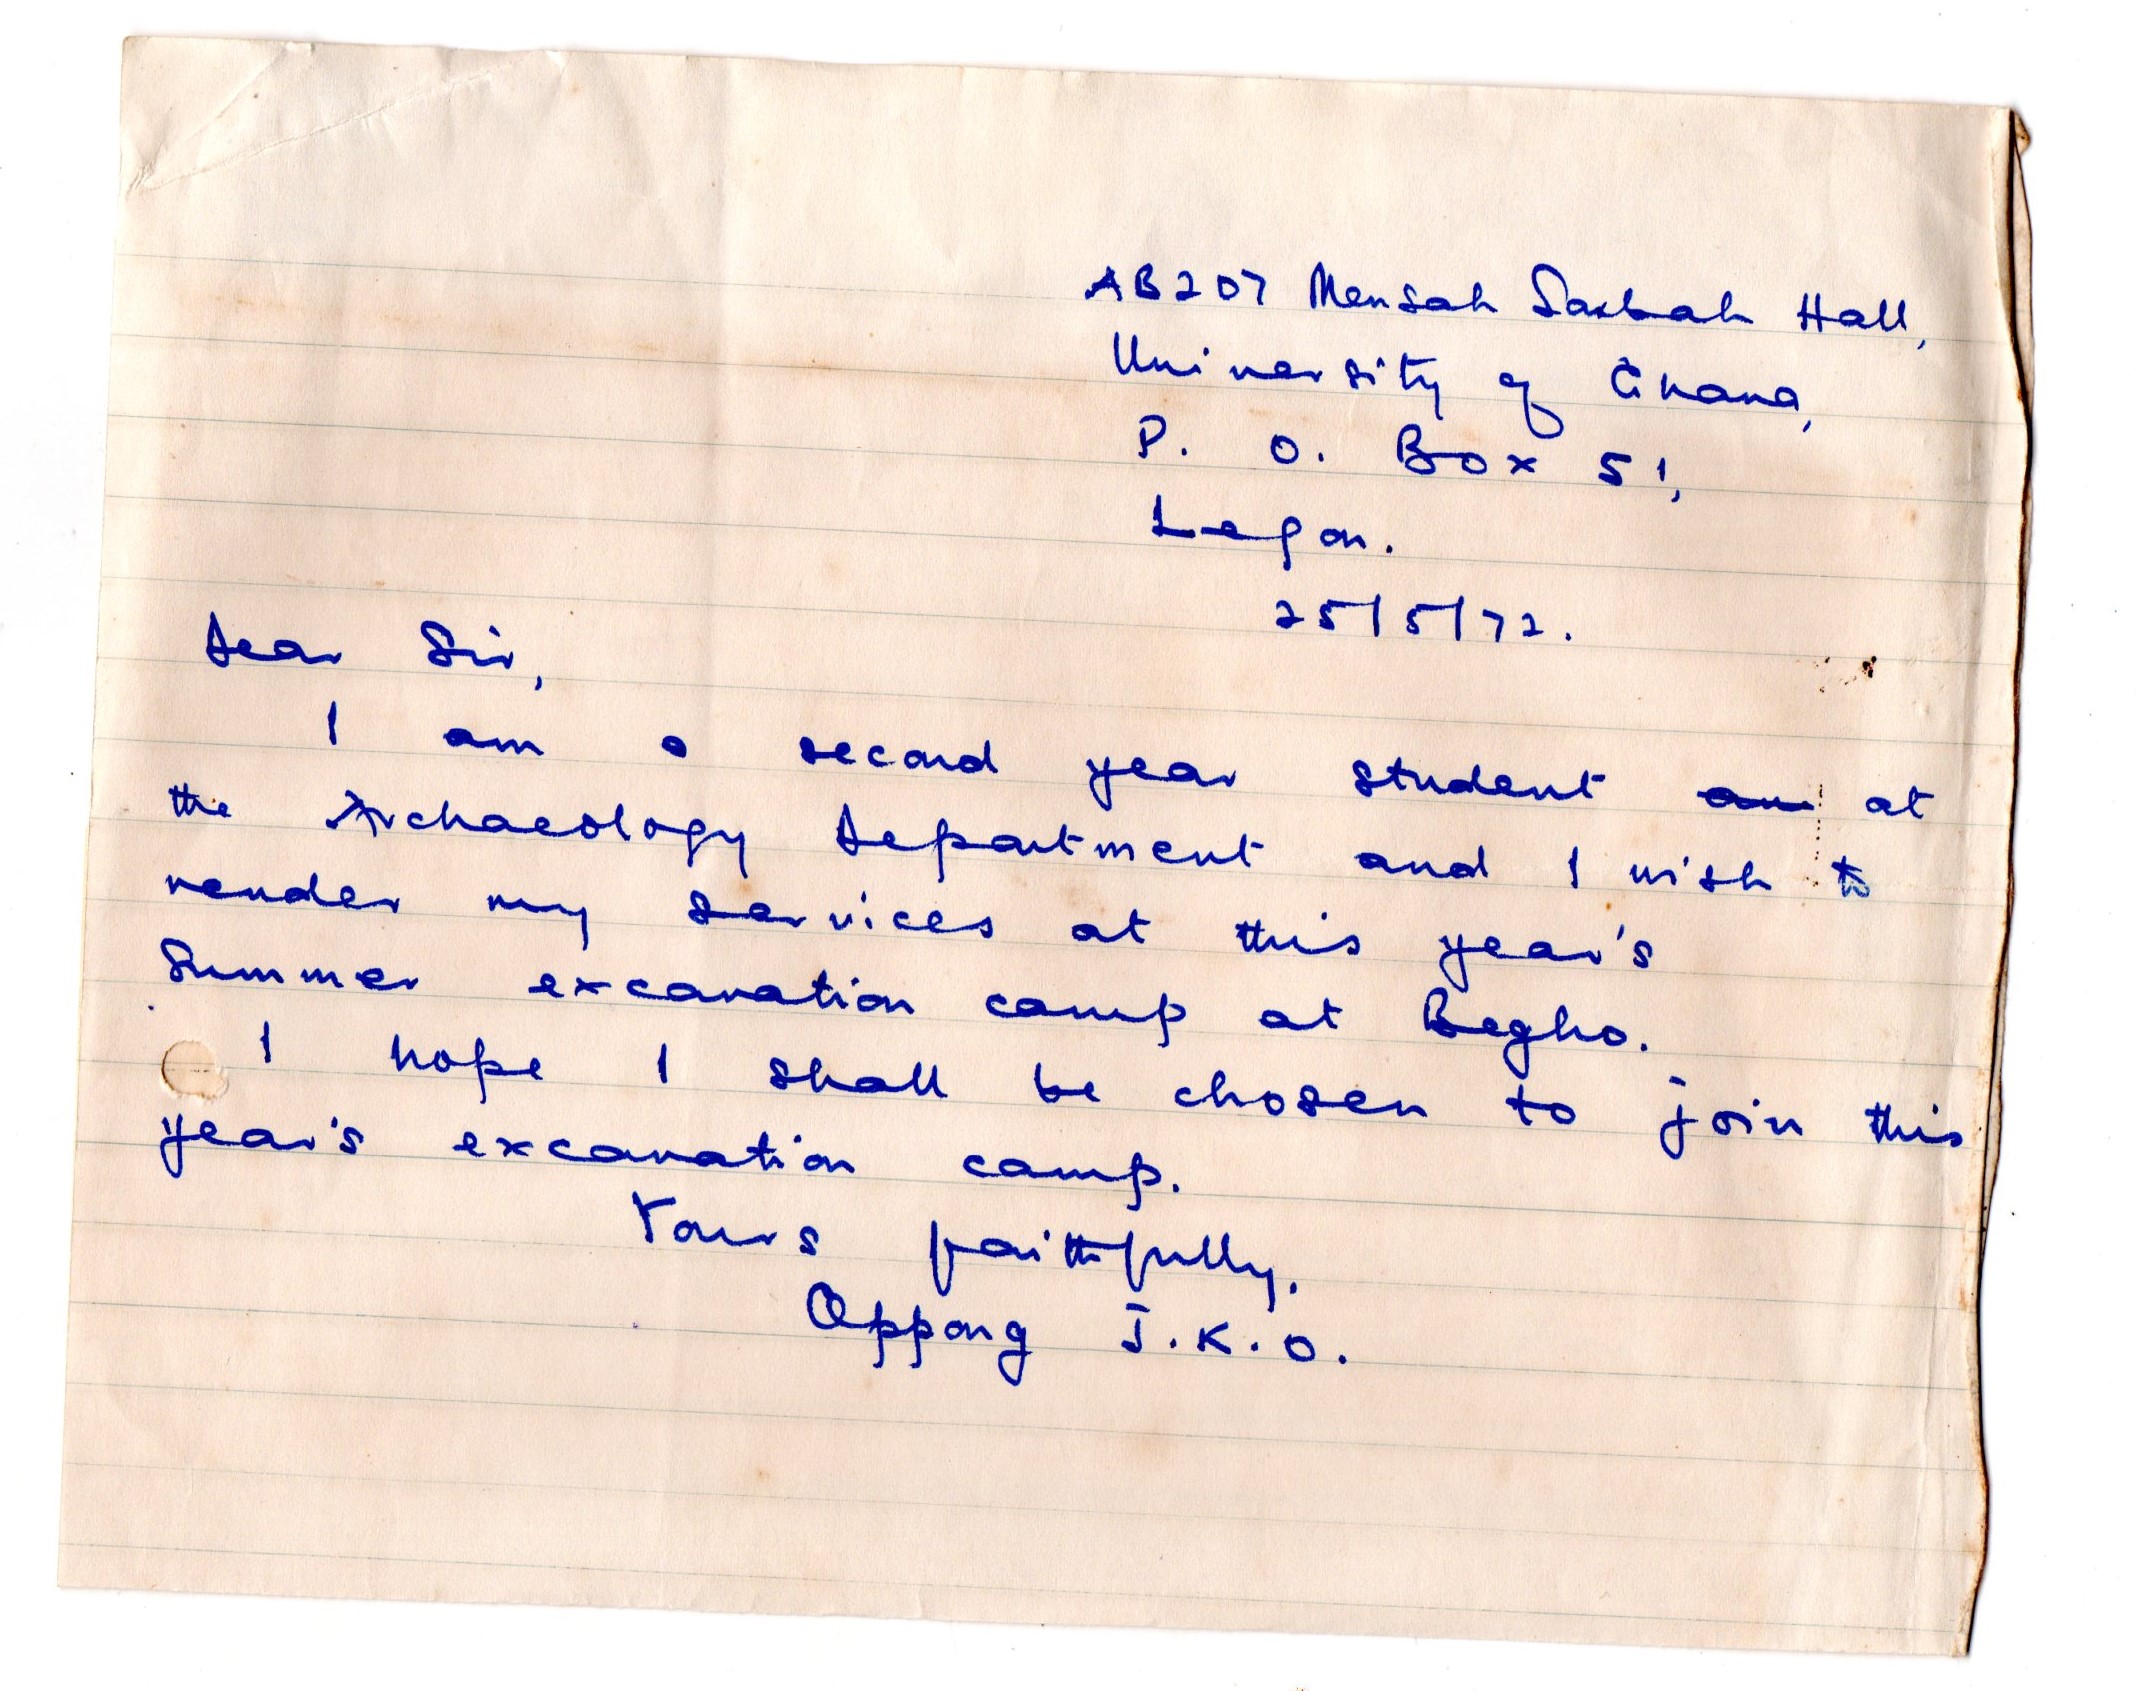 AB207 Mensah Sarbah Hall,
University of Ghana,
P. O. Box 51,
Legon.
25/5/72.
Dear Sir,
I am a second year student at
the Archaeology Department and I wish to
render my services at this year's
Summer excavation camp at Begho.
I hope I shall be chosen to join this
year's excavation camp.
Yours faithfully,
Oppong J.K.O.